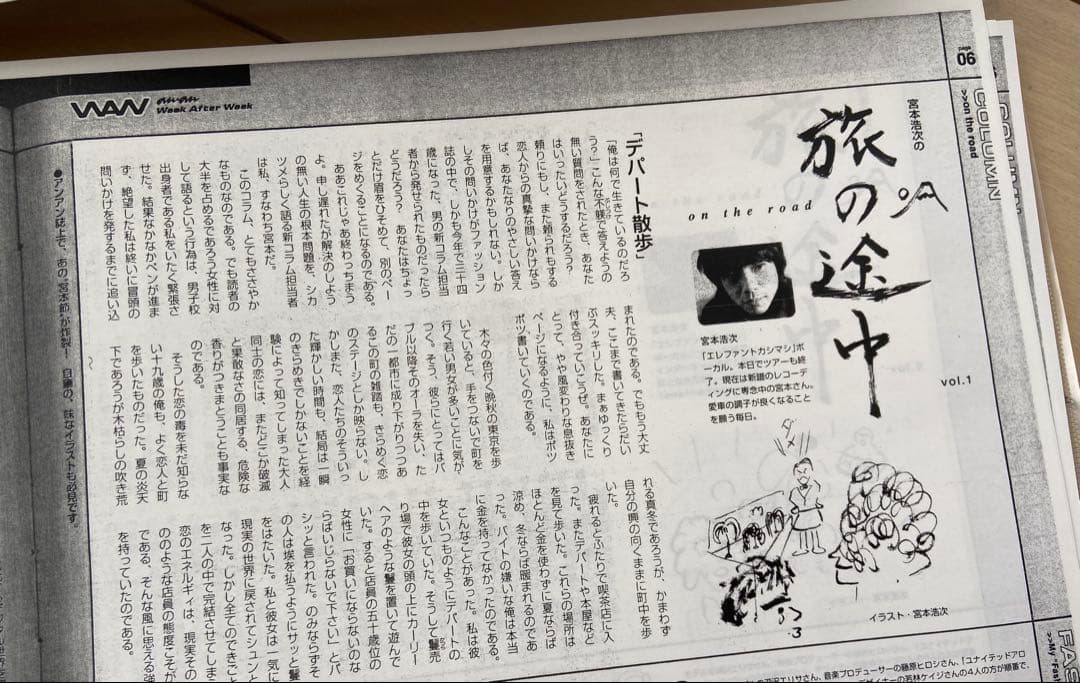 WAW anan
Week After Week
page 06
>>on the road
COLUMN
宮本浩次の
旅の途中
on the road
vol.1
宮本浩次
「エレファントカシマシ」ボ
ーカル。本日でツアーも終
了。現在は新譜のレコーデ
ィングに専念中の宮本さん。
愛車の調子が良くなること
を願う毎日。
「デパート散歩」
「俺は何で生きているのだろ
う？」こんな不躾で答えようの
ぶしつけ
無い質問をされたとき、あなた
はいったいどうするだろう？
頼りにもし、また頼られもする
恋人からの真摯な問いかけなら
ば、あなたなりのやさしい答え
を用意するかもしれない。しか
しその問いかけがファッション
誌の中で、しかも今年で三十四
歳になった、男の新コラム担当
者から発せられたものだったら
どうだろう？　あなたはちょっ
とだけ眉をひそめて、別のペー
ジをめくることになるのである。
ああこれじゃあ終わっちまう
よ。申し遅れたが解決のしよう
の無い人生の根本問題を、シカ
ツメらしく語る新コラム担当者
は私、すなわち宮本だ。
このコラム、とてもささやか
なものなのである。でも読者の
大半を占めるであろう女性に対
して語るという行為は、男子校
出身者である私をいたく緊張さ
せた。結果なかなかペンが進ま
ず、絶望した私は終いに冒頭の
問いかけを発するまでに追い込
まれたのである。でももう大丈
夫、ここまで書いてきたらだい
ぶスッキリした。まぁゆっくり
付き合っていこうぜ。あなたに
とって、やや風変わりな息抜き
ページになるように、私はポツ
ポツ書いていくのである。
木々の色付く晩秋の東京を歩
いていると、手をつないで町を
行く若い男女が多いことに気が
つく。そう、彼らにとってはバ
ブル以降そのオーラを失い、た
だの一都市に成り下がりつつあ
るこの町の雑踏も、きらめく恋
のステージとしか映らない。し
かしまた、恋人たちのそういっ
た輝かしい時間も、結局は一瞬
のきらめきでしかないことを経
験によって知ってしまった大人
同士の恋には、またどこか破滅
と果敢なさの同居する、危険な
香りがつきまとうことも事実な
のである。
そうした恋の毒を未だ知らな
い十九歳の俺も、よく恋人と町
を歩いたものだった。夏の炎天
下であろうが木枯らしの吹き荒
れる真冬であろうが、かまわず
自分の興の向くままに町中を歩
いた。
疲れるとふたりで喫茶店に入
った。またデパートや本屋など
を見て歩いた。これらの場所は
ほとんど金を使わずに夏ならば
涼め、冬ならば暖まれるのであ
った。バイトの嫌いな俺は本当
に金を持ってなかったのである。
こんなことがあった。私は彼
女といつものようにデパートの
中を歩いていた。そうして鬘売
かつら
り場で彼女の頭の上にカーリー
ヘアのような鬘を置いて遊んで
いた。すると店員の五十歳位の
女性に「お買いにならないのな
らばいじらないで下さい」とバ
シッと言われた。のみならずそ
の人は埃を払うようにサッと鬘
をはたいた。私と彼女は一気に
現実の世界に戻されてシュンと
なった。しかし全てのできごと
を二人の中で完結させてしまう
恋のエネルギィは、現実その
ののような店員の態度こそが
である、そんな風に思える強
を持っていたのである。
ダメ
イラスト・宮本浩次
●アンアン誌上で、あの“宮本節”が炸裂！　自画の、味なイラストも必見です。
エリサさん、音楽プロデューサーの藤原ヒロシさん、「ユナイテッドアロ
デザイナーの若林ケイジさんの4人の方が順番で、
FAS
>>My-Fas